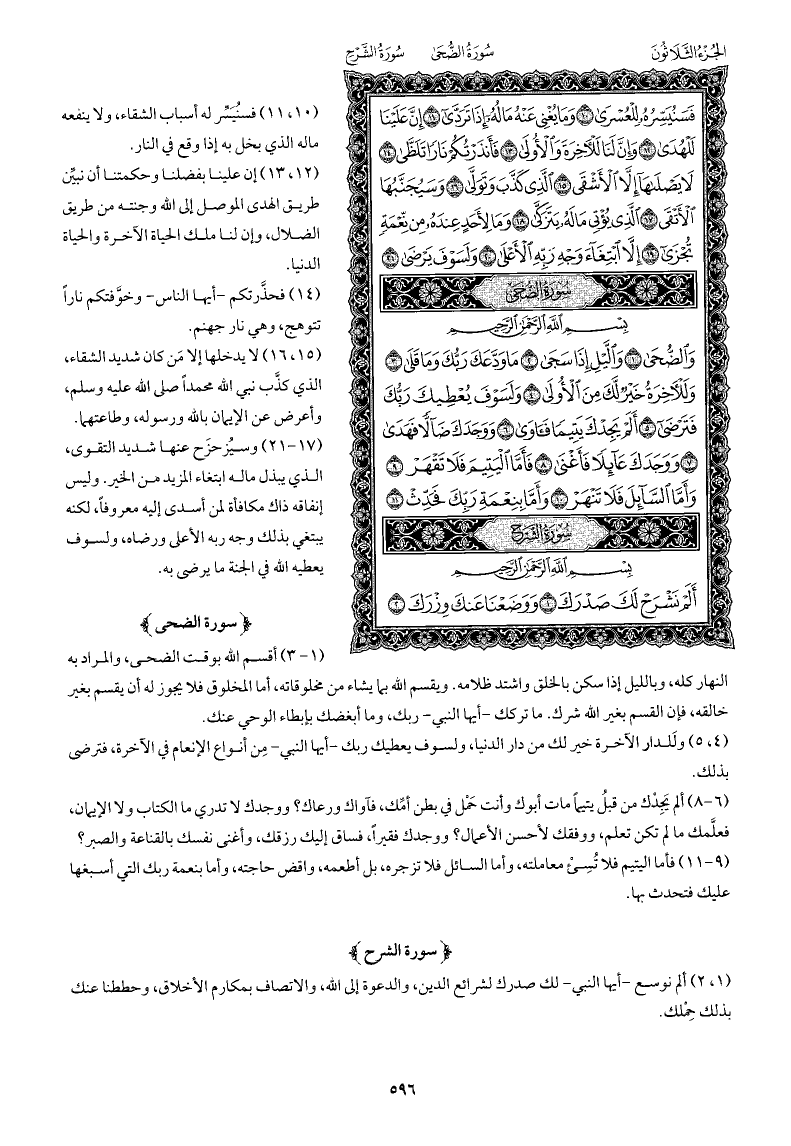 الجزء الثلاثون
سورة الضحى
سورة الشرح
فَسَنُيَسِّرُهُۥ لِلْعُسْرَىٰ ۝١٠ وَمَا يُغْنِى عَنْهُ مَالُهُۥٓ إِذَا تَرَدَّىٰٓ ۝١١ إِنَّ عَلَيْنَا
لَلْهُدَىٰ ۝١٢ وَإِنَّ لَنَا لَلْـَٔاخِرَةَ وَٱلْأُولَىٰ ۝١٣ فَأَنذَرْتُكُمْ نَارًا تَلَظَّىٰ ۝١٤
لَا يَصْلَىٰهَآ إِلَّا ٱلْأَشْقَى ۝١٥ ٱلَّذِى كَذَّبَ وَتَوَلَّىٰ ۝١٦ وَسَيُجَنَّبُهَا
ٱلْأَتْقَى ۝١٧ ٱلَّذِى يُؤْتِى مَالَهُۥ يَتَزَكَّىٰ ۝١٨ وَمَا لِأَحَدٍ عِندَهُۥ مِن نِّعْمَةٍ
تُجْزَىٰٓ ۝١٩ إِلَّا ٱبْتِغَآءَ وَجْهِ رَبِّهِ ٱلْأَعْلَىٰ ۝٢٠ وَلَسَوْفَ يَرْضَىٰ ۝٢١
سورة الضحى
بِسْمِ ٱللَّهِ ٱلرَّحْمَٰنِ ٱلرَّحِيمِ
وَٱلضُّحَىٰ ۝١ وَٱلَّيْلِ إِذَا سَجَىٰ ۝٢ مَا وَدَّعَكَ رَبُّكَ وَمَا قَلَىٰ ۝٣
وَلَلْـَٔاخِرَةُ خَيْرٌ لَّكَ مِنَ ٱلْأُولَىٰ ۝٤ وَلَسَوْفَ يُعْطِيكَ رَبُّكَ
فَتَرْضَىٰٓ ۝٥ أَلَمْ يَجِدْكَ يَتِيمًا فَـَٔاوَىٰ ۝٦ وَوَجَدَكَ ضَآلًّا فَهَدَىٰ
۝٧ وَوَجَدَكَ عَآئِلًا فَأَغْنَىٰ ۝٨ فَأَمَّا ٱلْيَتِيمَ فَلَا تَقْهَرْ ۝٩
وَأَمَّا ٱلسَّآئِلَ فَلَا تَنْهَرْ ۝١٠ وَأَمَّا بِنِعْمَةِ رَبِّكَ فَحَدِّثْ ۝١١
سورة الشرح
بِسْمِ ٱللَّهِ ٱلرَّحْمَٰنِ ٱلرَّحِيمِ
أَلَمْ نَشْرَحْ لَكَ صَدْرَكَ ۝١ وَوَضَعْنَا عَنكَ وِزْرَكَ ۝٢
(١٠، ١١) فسنُيَسِّر له أسباب الشقاء، ولا ينفعه
ماله الذي بخل به إذا وقع في النار.
(١٢، ١٣) إن علينا بفضلنا وحكمتنا أن نبيِّن
طريق الهدى الموصل إلى الله وجنته من طريق
الضلال، وإن لنا ملك الحياة الآخرة والحياة
الدنيا.
(١٤) فحذَّرتكم -أيها الناس- وخوَّفتكم ناراً
تتوهج، وهي نار جهنم.
(١٥، ١٦) لا يدخلها إلا مَن كان شديد الشقاء،
الذي كذَّب نبي الله محمداً صلى الله عليه وسلم،
وأعرض عن الإيمان بالله ورسوله، وطاعتهما.
(١٧-٢١) وسيُزحزَح عنها شديد التقوى،
الذي يبذل ماله ابتغاء المزيد من الخير. وليس
إنفاقه ذاك مكافأة لمن أسدى إليه معروفاً، لكنه
يبتغي بذلك وجه ربه الأعلى ورضاه، ولسوف
يعطيه الله في الجنة ما يرضى به.
﴿سورة الضحى﴾
(١-٣) أقسم الله بوقت الضحى، والمراد به
النهار كله، وبالليل إذا سكن بالخلق واشتد ظلامه. ويقسم الله بما يشاء من مخلوقاته، أما المخلوق فلا يجوز له أن يقسم بغير
خالقه، فإن القسم بغير الله شرك. ما تركك -أيها النبي- ربك، وما أبغضك بإبطاء الوحي عنك.
(٤، ٥) ولَلدار الآخرة خير لك من دار الدنيا، ولسوف يعطيك ربك -أيها النبي- مِن أنواع الإنعام في الآخرة، فترضى
بذلك.
(٦-٨) ألم يَجِدْك من قبلُ يتيماً مات أبوك وأنت حَمْل في بطن أمِّك، فآواك ورعاك؟ ووجدك لا تدري ما الكتاب ولا الإيمان،
فعلَّمك ما لم تكن تعلم، ووفقك لأحسن الأعمال؟ ووجدك فقيراً، فساق إليك رزقك، وأغنى نفسك بالقناعة والصبر؟
(٩-١١) فأما اليتيم فلا تُسِئْ معاملته، وأما السائل فلا تزجره، بل أطعمه، واقض حاجته، وأما بنعمة ربك التي أسبغها
عليك فتحدث بها.
﴿سورة الشرح﴾
(١، ٢) ألم نوسع -أيها النبي- لك صدرك لشرائع الدين، والدعوة إلى الله، والاتصاف بمكارم الأخلاق، وحططنا عنك
بذلك حِمْلك.
٥٩٦